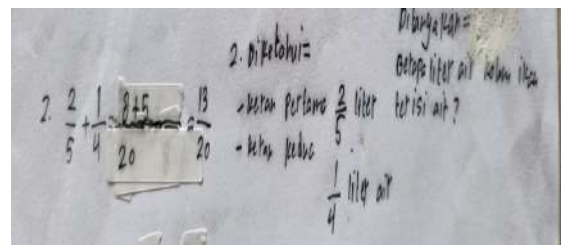 2. 2/5 + 1/4 = 8+5/20 = 13/20
2. Diketahui =
- keran pertama 2/5 liter
- keran kedua
1/4 liter air
Ditanyakan =
Berapa liter air kolam ikan
terisi air?